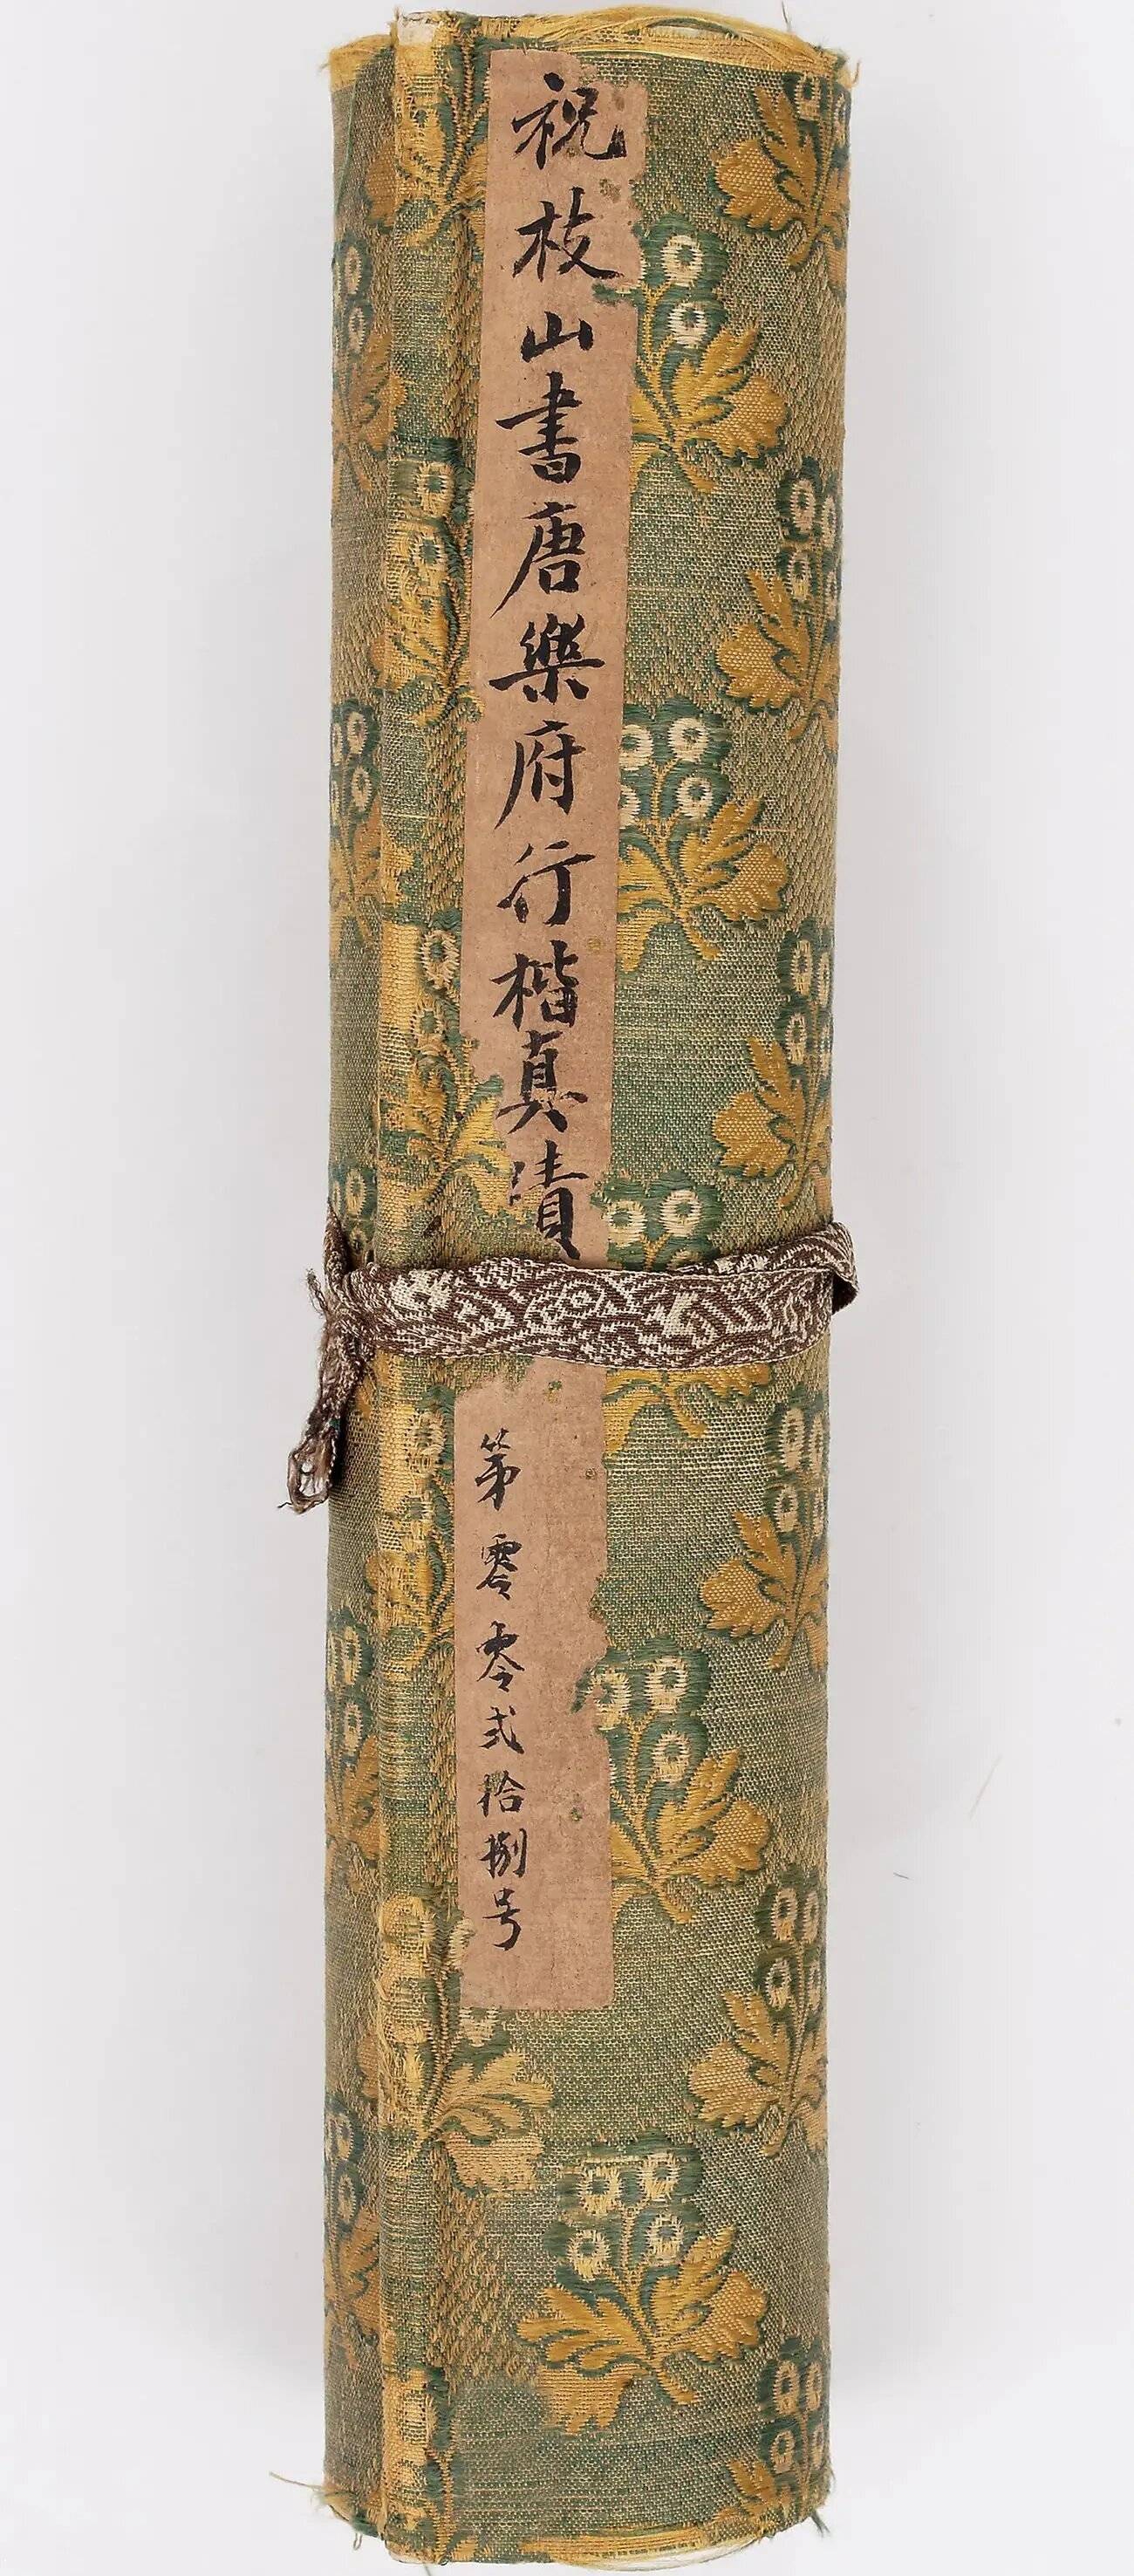 祝枝山書唐樂府行楷真漬
第零零弍拾捌号